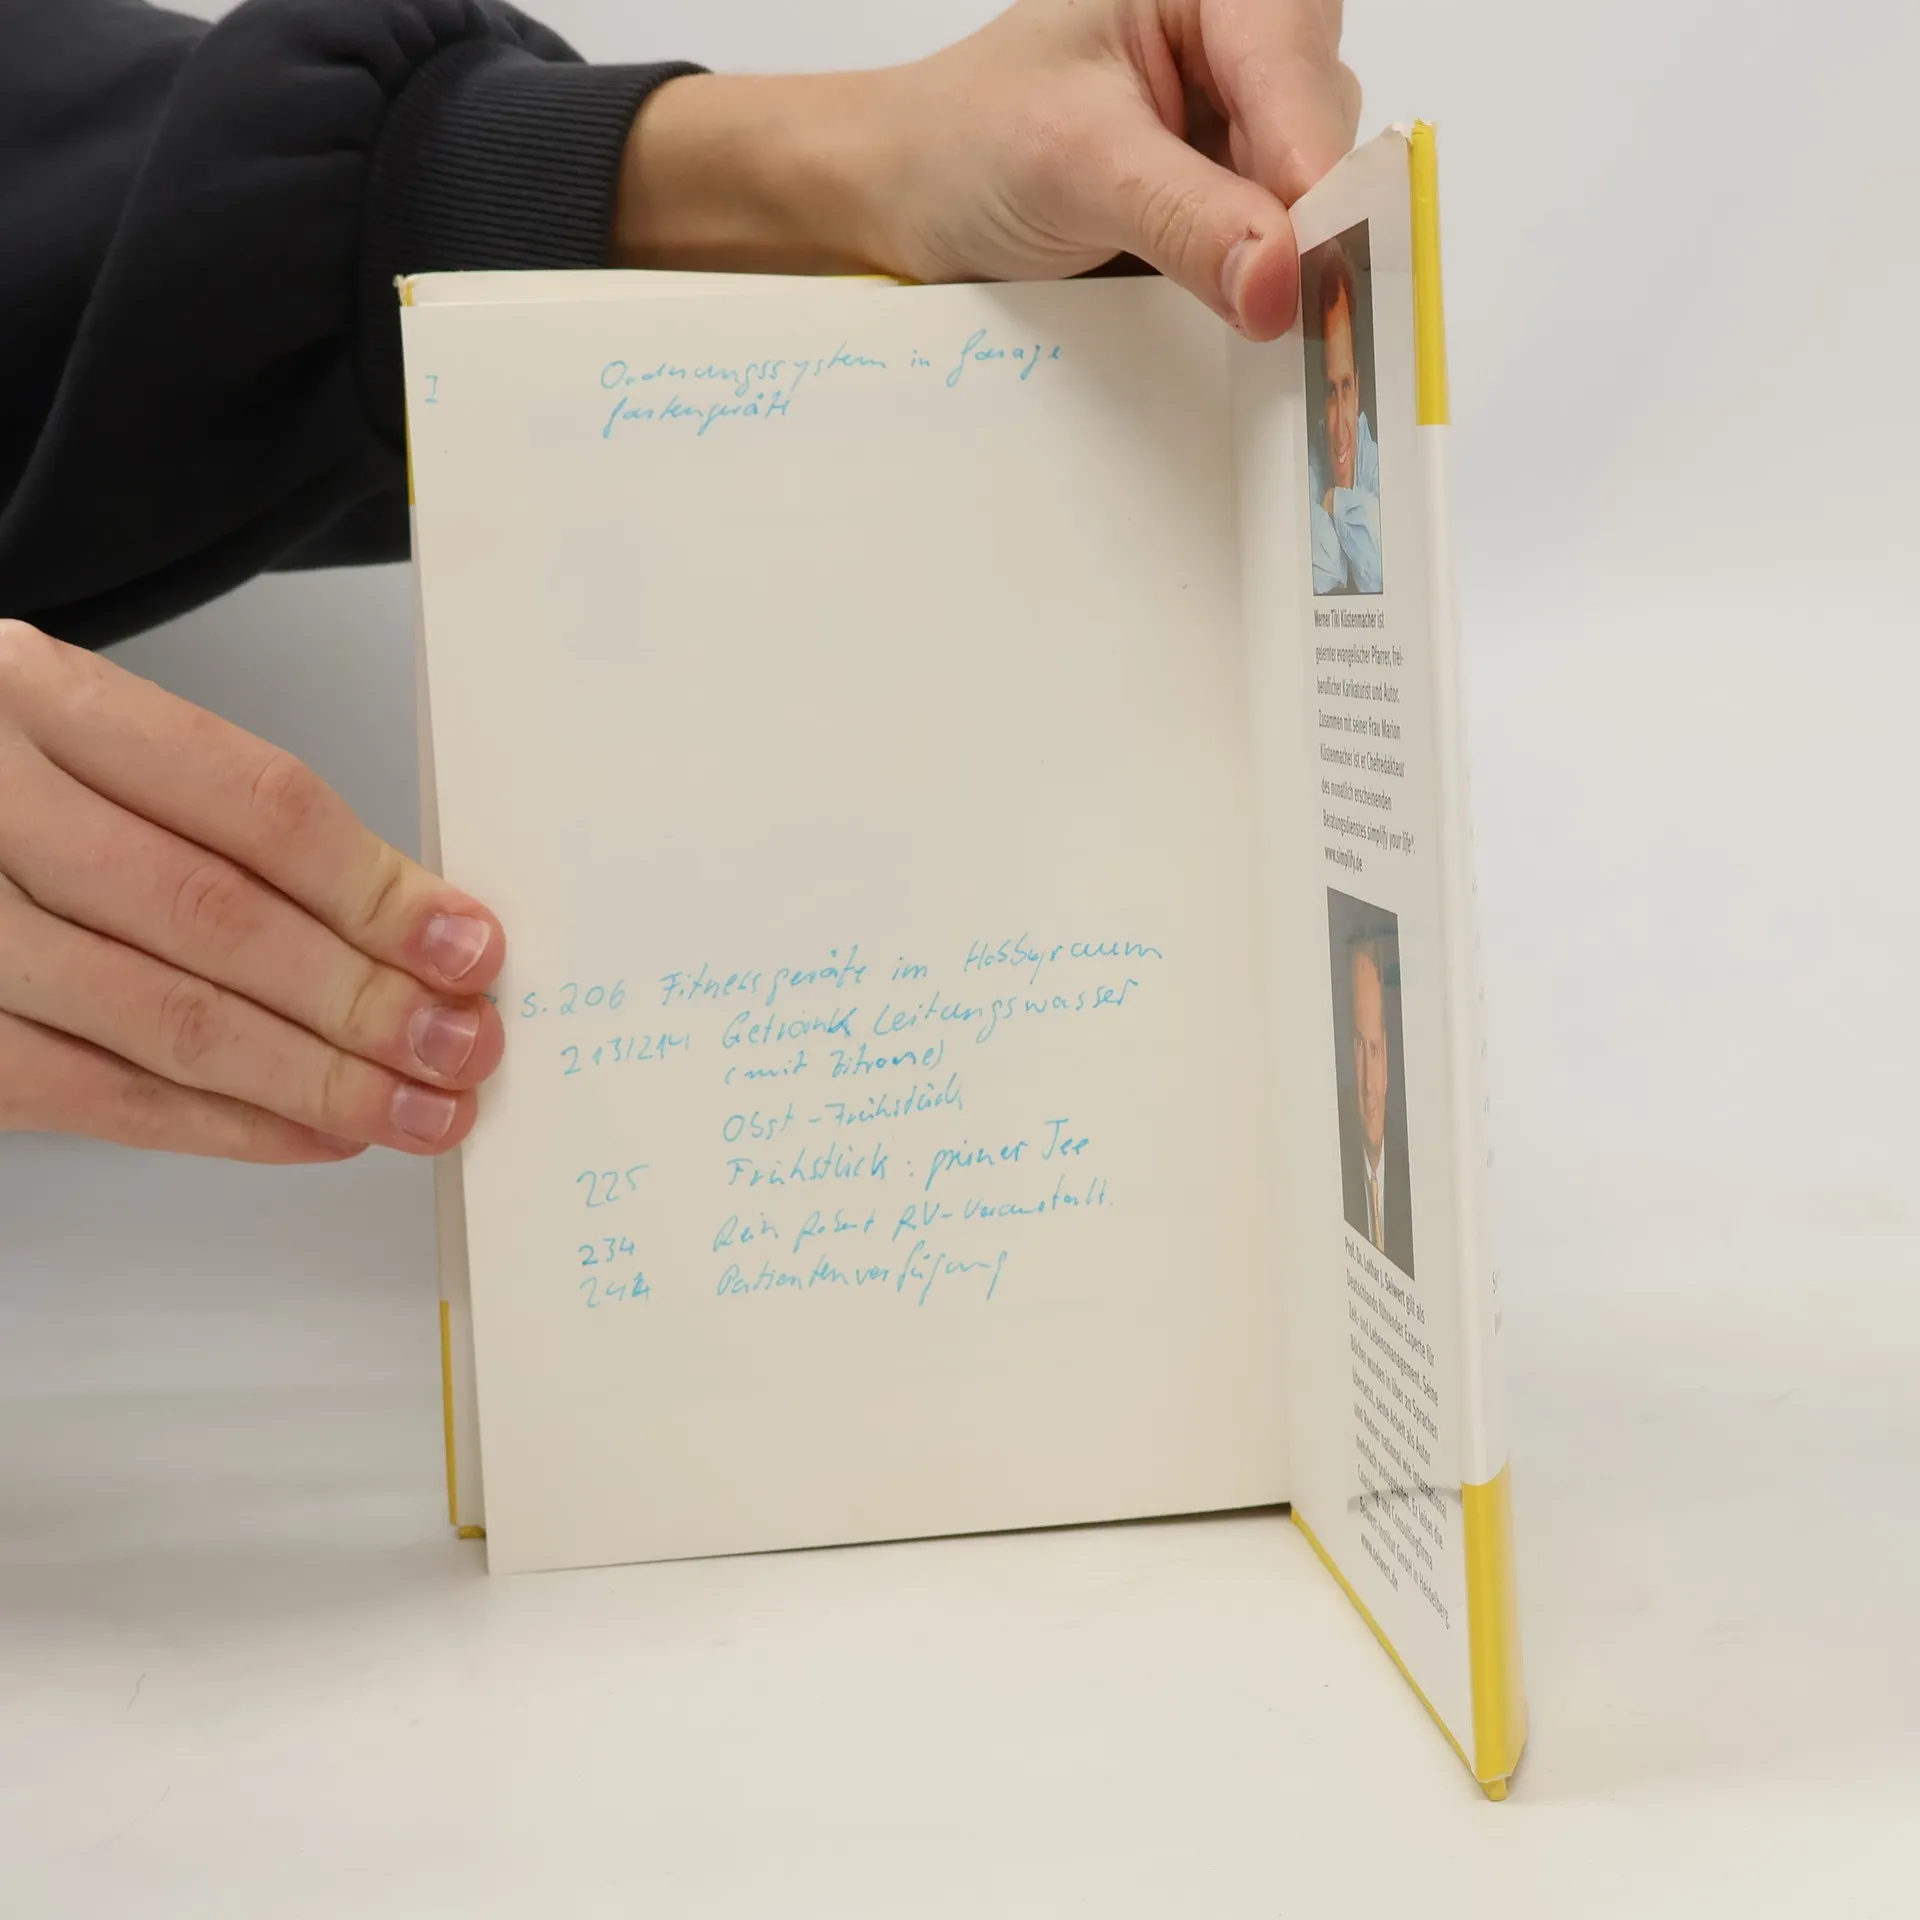 I Ordnungssystem in Garage
Gartengeräte
S. 206 Fitnessgeräte im Hobbyraum
213/214 Getränk Leitungswasser
(mit Zitrone)
Obst-Frühstück
225 Frühstück: grüner Tee
234 RV-Veranstalt.
Patientenverfügung
Werner Tiki Küstenmacher ist
gelernter evangelischer Pfarrer, frei-
beruflicher Karikaturist und Autor.
Zusammen mit seiner Frau Marion
Küstenmacher ist er Chefredakteur
des monatlich erscheinenden
Beratungsdienstes simplify your life®.
www.simplify.de
Prof. Dr. Lothar J. Seiwert gilt als
Deutschlands führender Experte für
Zeit- und Lebensmanagement. Seine
Bücher wurden in über 20 Sprachen
übersetzt, seine Arbeit als Autor
und Redner national wie international
mehrfach preisgekrönt. Er leitet die
Coaching- und Consultingfirma
Seiwert-Institut GmbH in Heidelberg.
www.seiwert.de